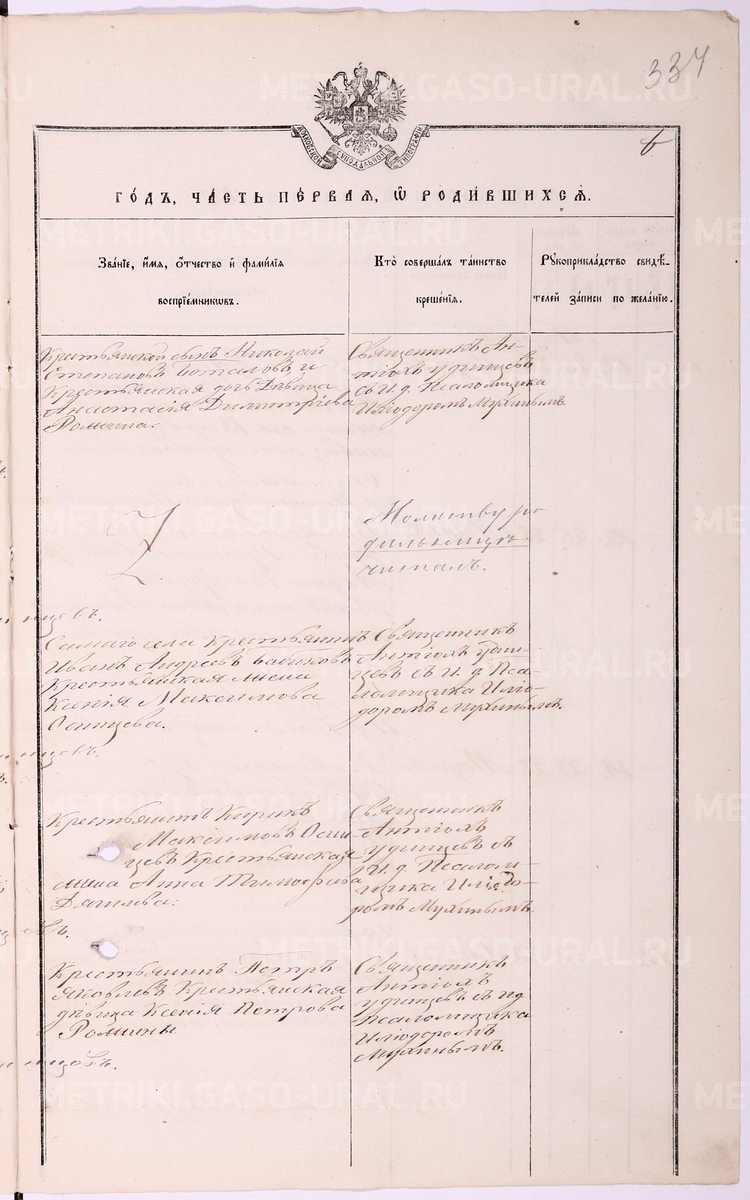 337
6
МОСКОВСКОЙ СѴНОДАЛЬНОЙ ТИПОГРАФІИ
ГО́ДЪ, ЧА́СТЬ ПЕ́РВАЯ, Ѽ РОДИ́ВШИХСЯ.
ЗВА́НІЕ, И́МЯ, О́ТЧЕСТВО И҆ ФАМИ́ЛІЯ
ВОСПРІЕ́МНИКѠВЪ.
КТО̀ СОВЕРША́ЛЪ ТА́ИНСТВО
КРЕЩЕ́НІЯ.
РꙊКОПРИКЛА́ДСТВО СВИДѢ́-
ТЕЛЕЙ ЗА́ПИСИ ПО ЖЕЛА́НІЮ.
Крестьянской сынъ Николай
Степановъ Потаповъ и
Крестьянская дочь Дѣвица
Анастасія Димитріева
Ромина.
Священникъ Ан-
тіохъ Удинцевъ
съ И. д. Псаломщика
Иліодоромъ Мухинымъ
Молитву ро
дильницѣ
читалъ.
Самаго села Крестьянинъ
Иванъ Андреевъ Бабиковъ
Крестьянская жена
Ксенія Максимова
Осинцева.
Священникъ
Антіохъ Удин-
цевъ съ И. д. Пса-
ломщика Иліо-
доромъ Мухинымъ.
Крестьянинъ Кирикъ
Максимовъ Осин-
цевъ Крестьянская
жена Анна Тимофѣева
Священникъ
Антіохъ
Удинцевъ съ
И. д. Псалом-
щика Иліодо-
ромъ Мухинымъ.
Крестьянинъ Петръ
Яковлевъ Крестьянская
дѣвица Ксенія Петрова
Ромины
Священникъ
Антіохъ
Удинцевъ съ ид
Псаломщика
Иліодоромъ
Мухинымъ.
METRIKI.GASO-URAL.RU